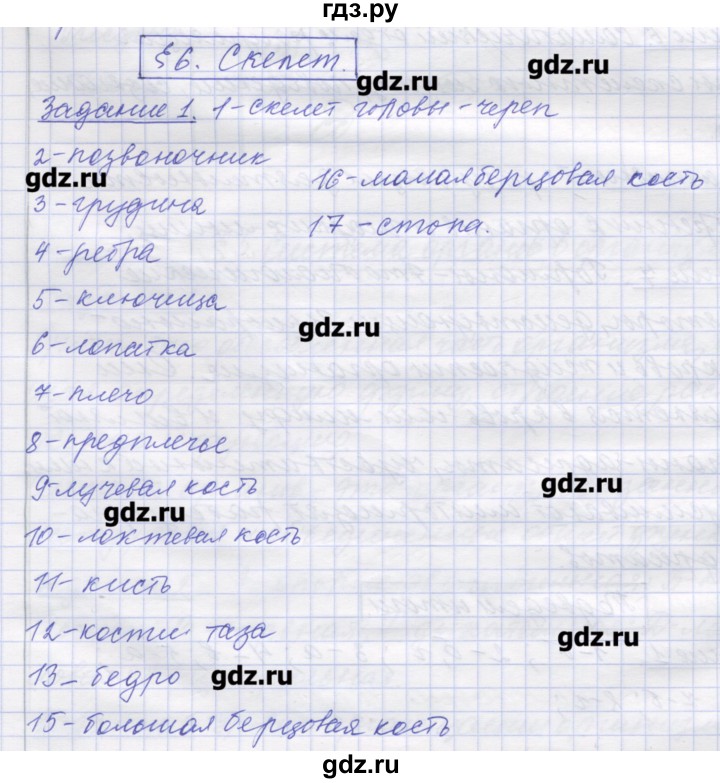 гдз.ру
§6. Скелет.
gdz.ru
gdz.ru
Задание 1. 1-скелет головы-череп
2-позвоночник
gdz.ru
16-малая берцовая кость
3-грудина
17-стопа.
4-ребра
5-ключица
gdz.ru
6-лопатка
7-плечо
8-предплечье
9-лучевая кость
gdz.ru
gdz.ru
10-локтевая кость
11-кисть
12-кости таза
gdz.ru
13-бедро
gdz.ru
15-большая берцовая кость
gdz.ru